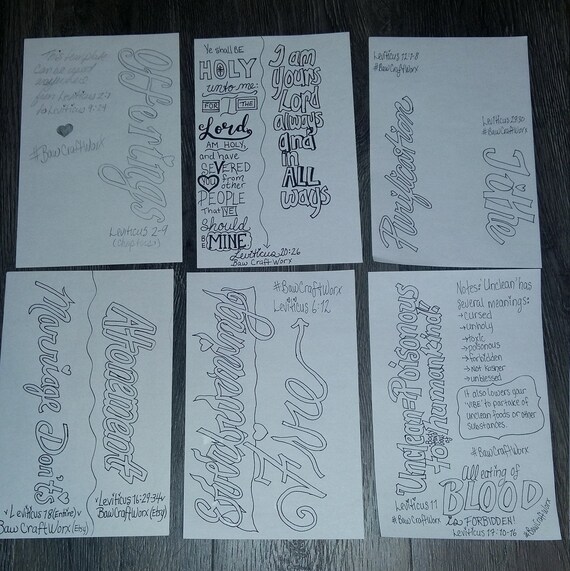 This template
can be used
anywhere
from Leviticus 2:1
to Leviticus 9:24
#BawCraftWorx
Offerings
Leviticus 2-9
(Chapters)
Ye shall BE
HOLY
unto me:
FOR I THE
Lord
AM HOLY,
and have
SEVERED
YOU from
other
PEOPLE
That YE
Should
BE MINE
I am
yours
Lord
always
and
in
ALL
ways
Leviticus 20:26
Baw Craft Worx
Leviticus 12:7-8
#BawCraftWorx
Purification
Leviticus 27:30
#BawCraftWorx
Tithe
Marriage Don'ts
Leviticus 18 (Entire)
BawCraftWorx (Etsy)
Atonement
Leviticus 16:29-34
BawCraftWorx (Etsy)
#BawCraftWorx
Leviticus 6:12
Everburning
Fire
Unclean=Poisonous
to humankind
Leviticus 11
#BawCraftWorx
Notes: 'Unclean' has
several meanings:
→cursed
→unholy
→toxic
→poisonous
→forbidden
→Not Kosher
→unblessed
It also lowers your
'VIBE' to partake of
unclean foods or other
substances.
#BawCraftWorx
All eating of
BLOOD
is FORBIDDEN!
Leviticus 17:10-16
#BawCraftWorx